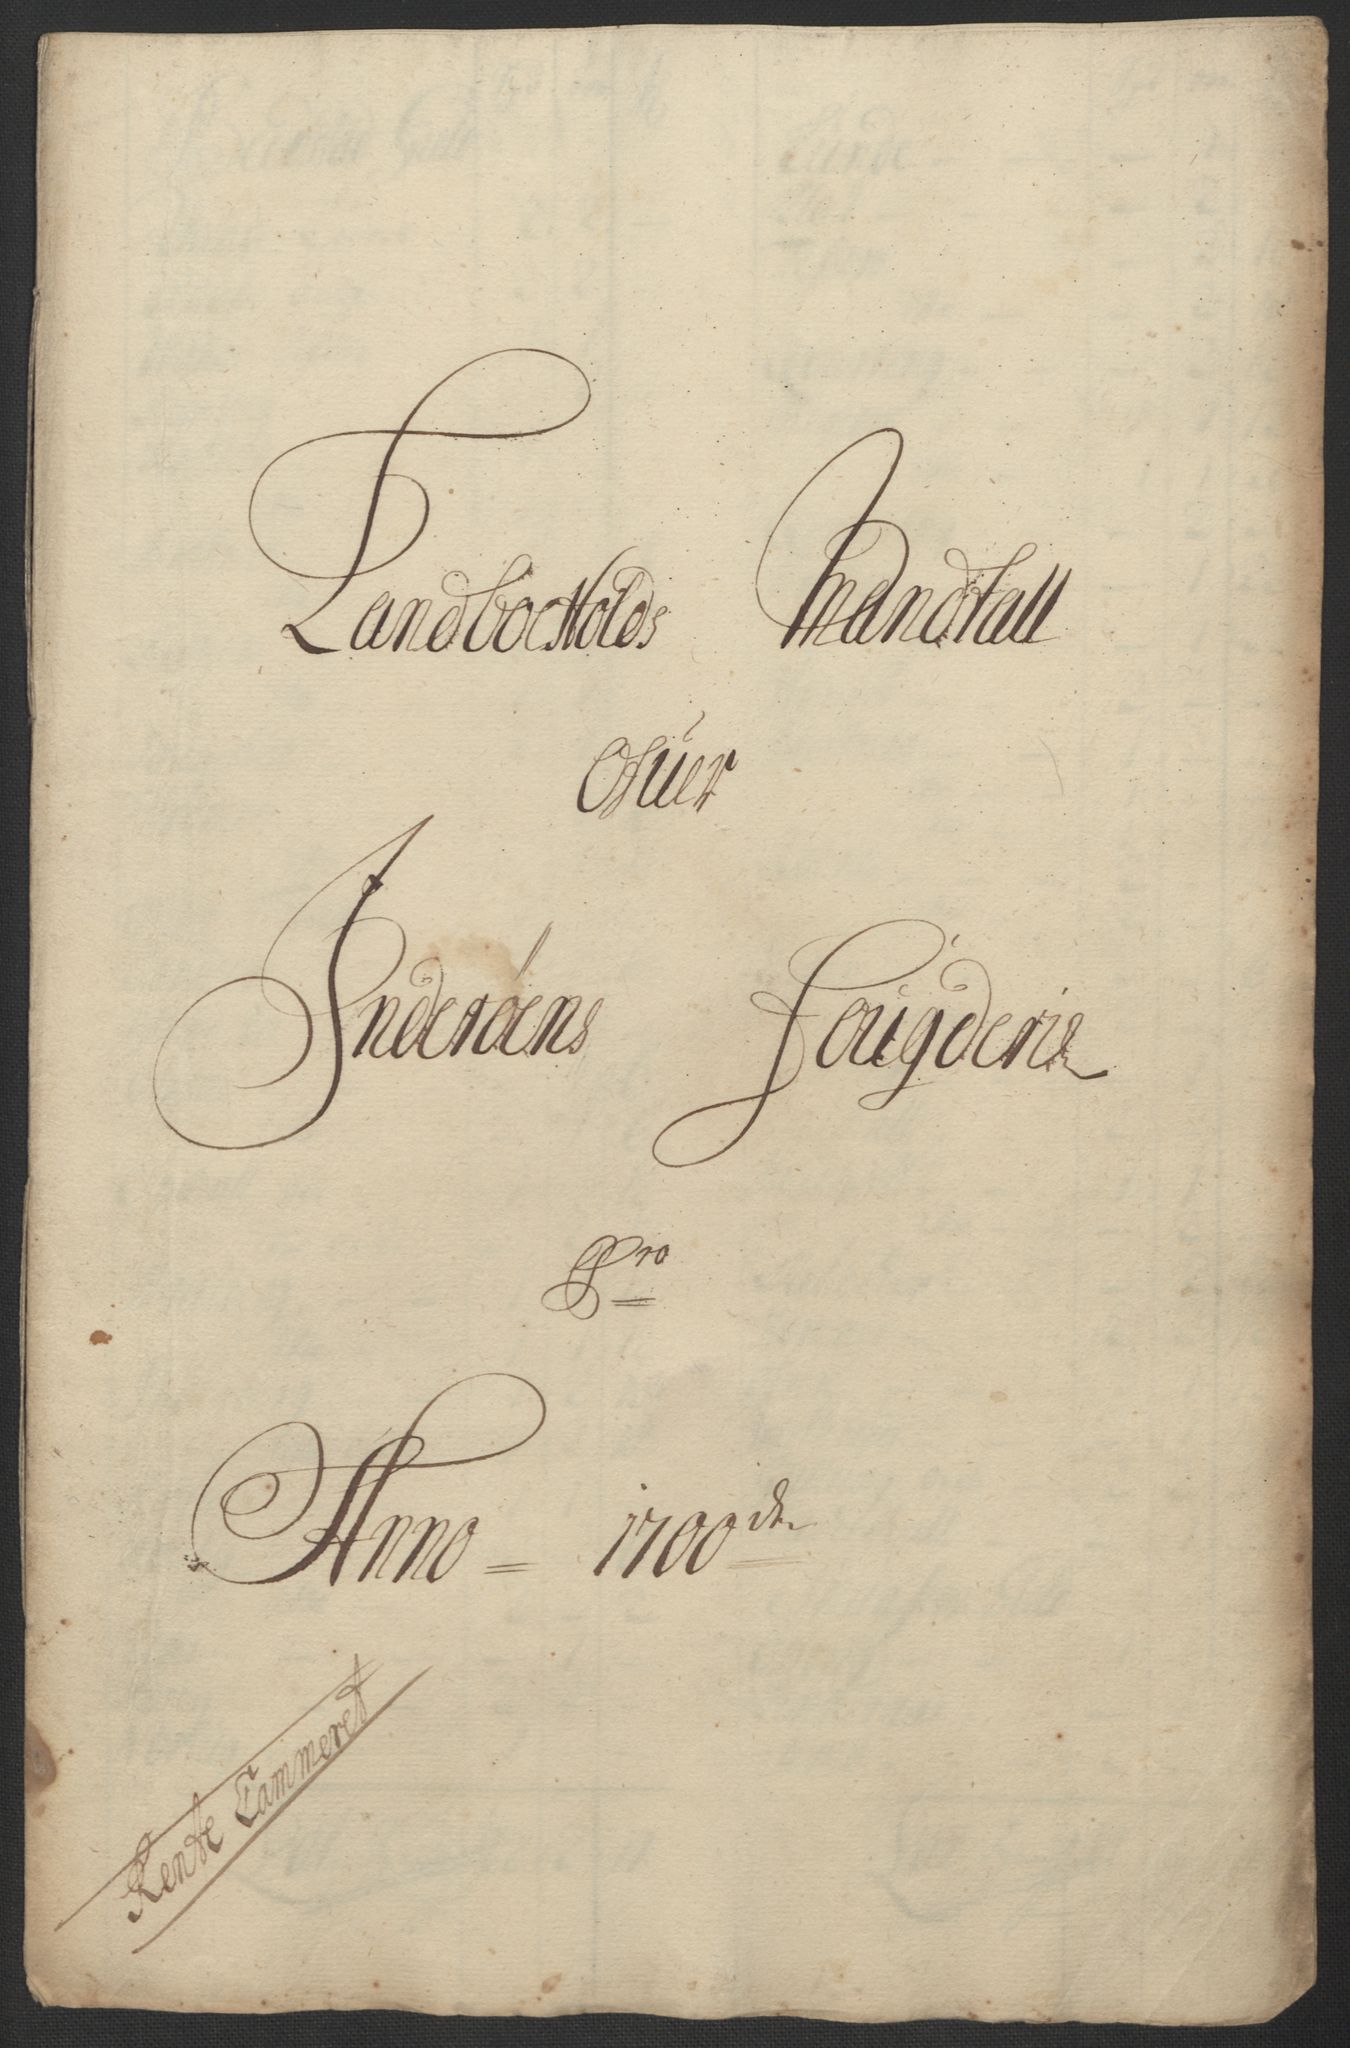 Landboeholds Mandtall
Ofuer
Inderöens Fougderie
Pro
Anno = 1700de
Rente Cammeret